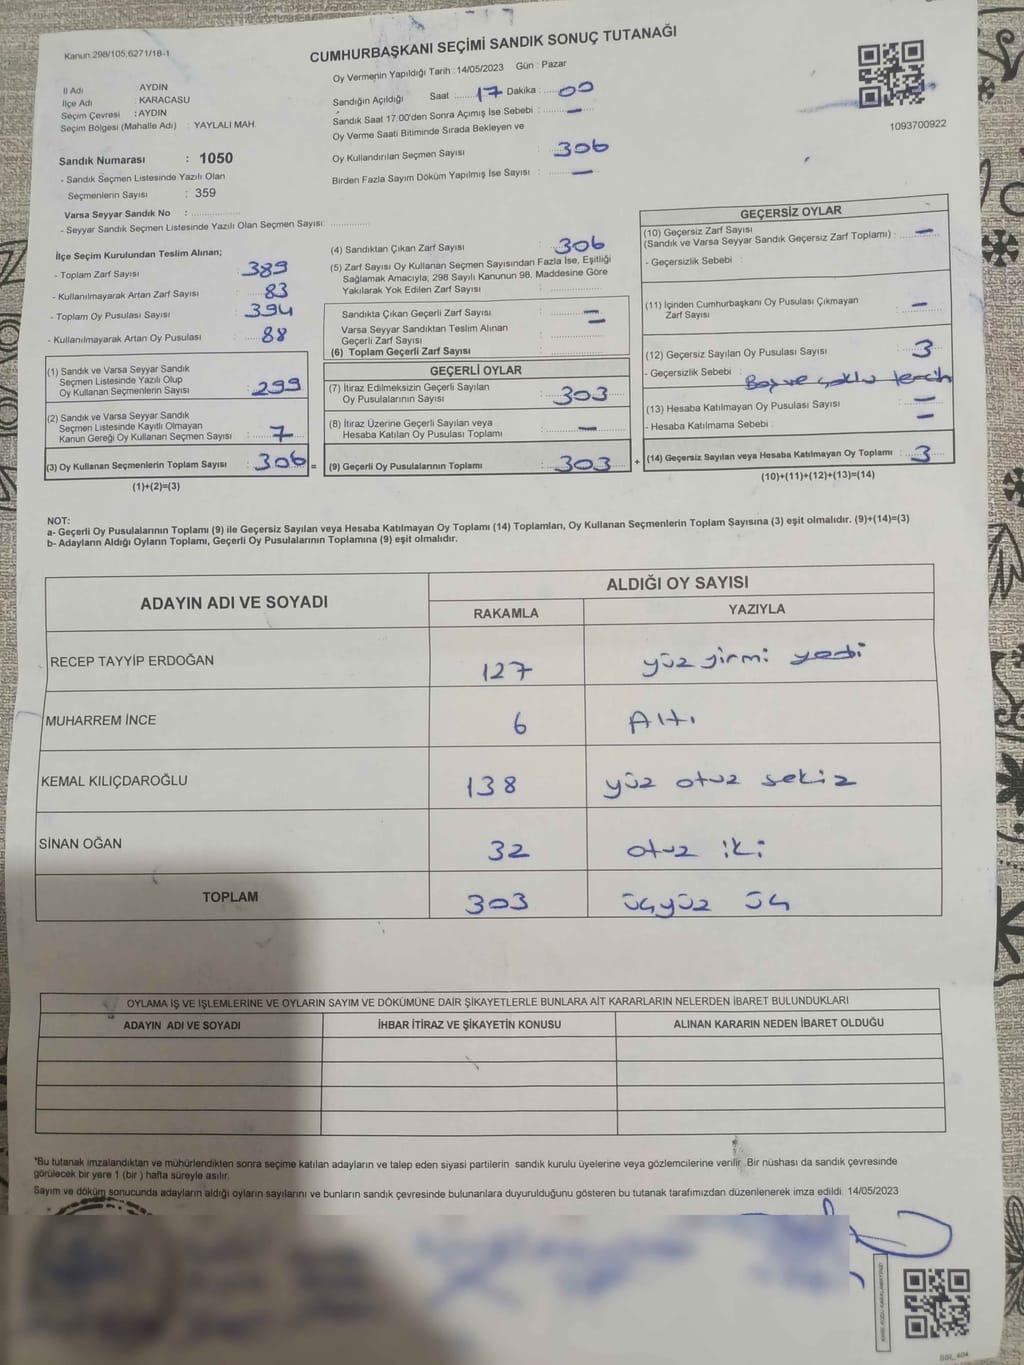 Kanun:298/105,6271/18-1
CUMHURBAŞKANI SEÇİMİ SANDIK SONUÇ TUTANAĞI
Oy Vermenin Yapıldığı Tarih : 14/05/2023 Gün : Pazar
İl Adı AYDIN
İlçe Adı : KARACASU
Seçim Çevresi : AYDIN
Seçim Bölgesi (Mahalle Adı) : YAYLALI MAH.
Sandık Numarası : 1050
- Sandık Seçmen Listesinde Yazılı Olan
Seçmenlerin Sayısı : 359
Varsa Seyyar Sandık No :
- Seyyar Sandık Seçmen Listesinde Yazılı Olan Seçmen Sayısı:
Sandığın Açıldığı Saat : 17 Dakika : 00
Sandık Saat 17:00'den Sonra Açımış İse Sebebi : —
Oy Verme Saati Bitiminde Sırada Bekleyen ve
Oy Kullandırılan Seçmen Sayısı : 306
Birden Fazla Sayım Döküm Yapılmış İse Sayısı : —
1093700922
İlçe Seçim Kurulundan Teslim Alınan;
- Toplam Zarf Sayısı : 389
- Kullanılmayarak Artan Zarf Sayısı : 83
- Toplam Oy Pusulası Sayısı : 394
- Kullanılmayarak Artan Oy Pusulası : 88
(1) Sandık ve Varsa Seyyar Sandık
Seçmen Listesinde Yazılı Olup
Oy Kullanan Seçmenlerin Sayısı : 299
(2) Sandık ve Varsa Seyyar Sandık
Seçmen Listesinde Kayıtlı Olmayan
Kanun Gereği Oy Kullanan Seçmen Sayısı : 7
(3) Oy Kullanan Seçmenlerin Toplam Sayısı : 306 =
(1)+(2)=(3)
(4) Sandıktan Çıkan Zarf Sayısı : 306
(5) Zarf Sayısı Oy Kullanan Seçmen Sayısından Fazla İse, Eşitliği
Sağlamak Amacıyla; 298 Sayılı Kanunun 98. Maddesine Göre
Yakılarak Yok Edilen Zarf Sayısı :
Sandıkta Çıkan Geçerli Zarf Sayısı : —
Varsa Seyyar Sandıktan Teslim Alınan
Geçerli Zarf Sayısı : —
(6) Toplam Geçerli Zarf Sayısı :
GEÇERLİ OYLAR
(7) İtiraz Edilmeksizin Geçerli Sayılan
Oy Pusulalarının Sayısı : 303
(8) İtiraz Üzerine Geçerli Sayılan veya
Hesaba Katılan Oy Pusulası Toplamı : —
(9) Geçerli Oy Pusulalarının Toplamı : 303 +
GEÇERSİZ OYLAR
(10) Geçersiz Zarf Sayısı
(Sandık ve Varsa Seyyar Sandık Geçersiz Zarf Toplamı) : —
- Geçersizlik Sebebi :
(11) İçinden Cumhurbaşkanı Oy Pusulası Çıkmayan
Zarf Sayısı : —
(12) Geçersiz Sayılan Oy Pusulası Sayısı : 3
- Geçersizlik Sebebi : Boş ve çoklu tercih
(13) Hesaba Katılmayan Oy Pusulası Sayısı : —
- Hesaba Katılmama Sebebi : —
(14) Geçersiz Sayılan veya Hesaba Katılmayan Oy Toplamı : 3
(10)+(11)+(12)+(13)=(14)
NOT:
a- Geçerli Oy Pusulalarının Toplamı (9) ile Geçersiz Sayılan veya Hesaba Katılmayan Oy Toplamı (14) Toplamları, Oy Kullanan Seçmenlerin Toplam Sayısına (3) eşit olmalıdır. (9)+(14)=(3)
b- Adayların Aldığı Oyların Toplamı, Geçerli Oy Pusulalarının Toplamına (9) eşit olmalıdır.
ADAYIN ADI VE SOYADI ALDIĞI OY SAYISI
RAKAMLA YAZIYLA
RECEP TAYYİP ERDOĞAN 127 yüz yirmi yedi
MUHARREM İNCE 6 Altı
KEMAL KILIÇDAROĞLU 138 yüz otuz sekiz
SİNAN OĞAN 32 otuz iki
TOPLAM 303 üçyüz üç
OYLAMA İŞ VE İŞLEMLERİNE VE OYLARIN SAYIM VE DÖKÜMÜNE DAİR ŞİKAYETLERLE BUNLARA AİT KARARLARIN NELERDEN İBARET BULUNDUKLARI
ADAYIN ADI VE SOYADI İHBAR İTİRAZ VE ŞİKAYETİN KONUSU ALINAN KARARIN NEDEN İBARET OLDUĞU
*Bu tutanak imzalandıktan ve mühürlendikten sonra seçime katılan adayların ve talep eden siyasi partilerin sandık kurulu üyelerine veya gözlemcilerine verilir. Bir nüshası da sandık çevresinde
görülecek bir yere 1 (bir ) hafta süreyle asılır.
Sayım ve döküm sonucunda adayların aldığı oyların sayılarını ve bunların sandık çevresinde bulunanlara duyurulduğunu gösteren bu tutanak tarafımızdan düzenlenerek imza edildi. 14/05/2023